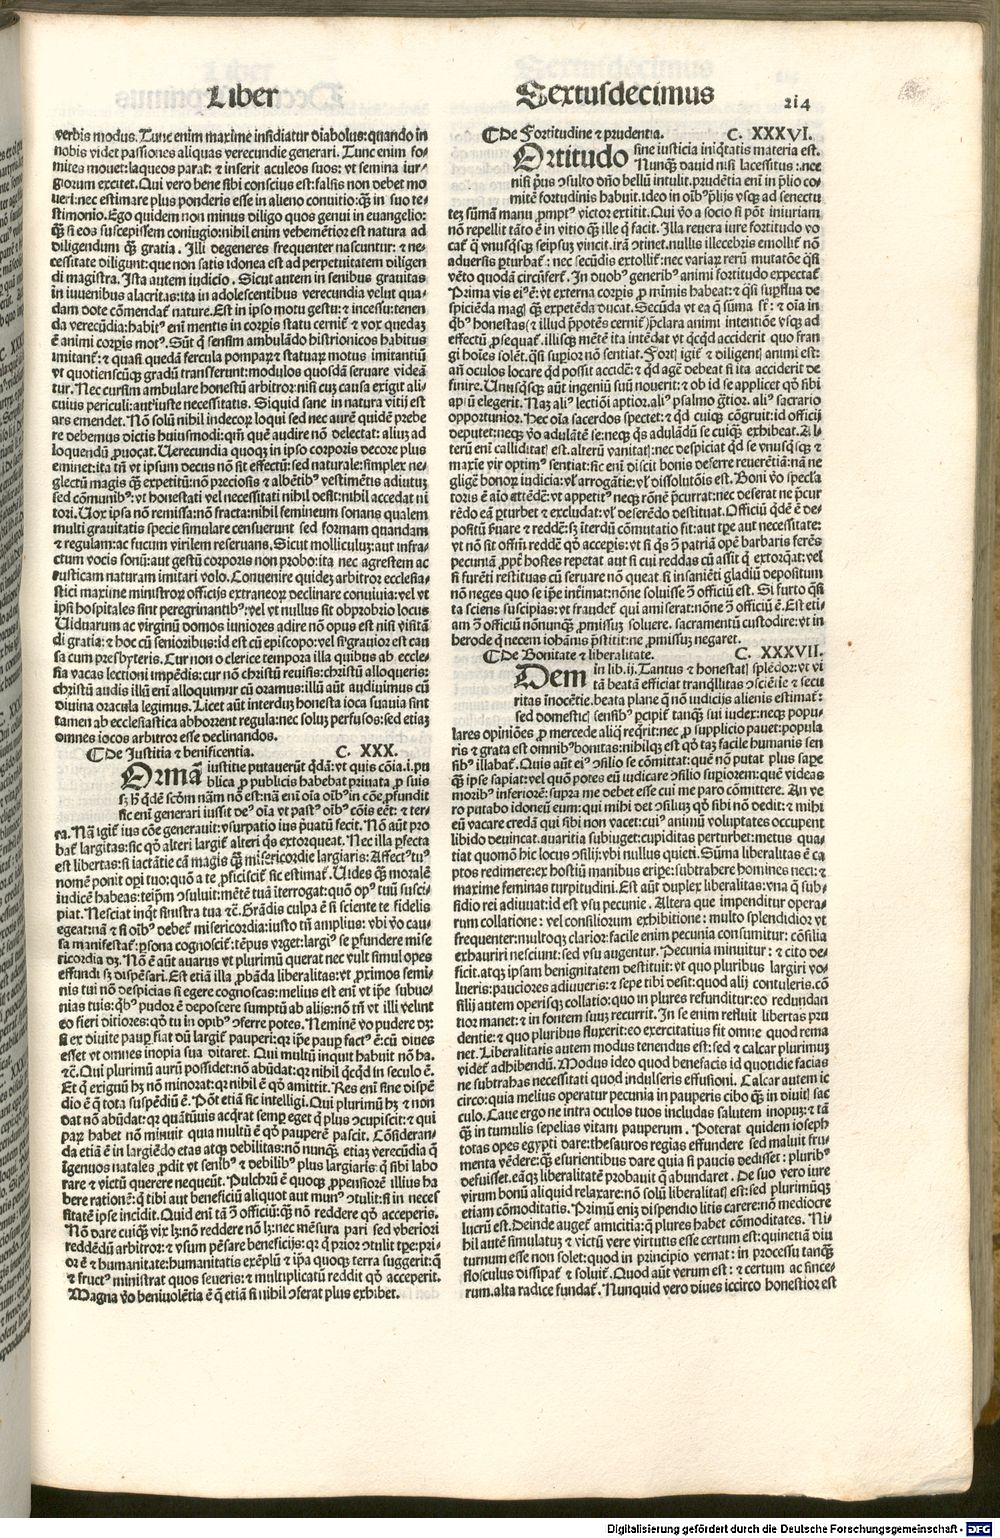 Liber
Sextusdecimus
214
verbis modus. Tunc enim maxime insidiatur diabolus: quando in
nobis videt passiones aliquas verecundie generari. Tunc enim fo-
mites mouet: laqueos parat: ⁊ inserit aculeos suos: vt semina iur-
giorum excitet. Qui vero bene sibi conscius est: falsis non debet mo
ueri: nec estimare plus ponderis esse in alieno conuitio: q̃ʒ in suo te-
stimonio. Ego quidem non minus diligo quos genui in euangelio:
q̃ʒ si eos suscepissem coniugio: nihil enim vehemẽtior est natura ad
diligendum q̃ʒ gratia. Illi degeneres frequenter nascuntur: ⁊ ne-
cessitate diligunt: que non satis idonea est ad perpetuitatem diligen
di magistra. Ista autem iudicio. Sicut autem in senibus grauitas
in iuuenibus alacritas: ita in adolescentibus verecundia velut qua-
dam dote cõmendat̃ nature. Est in ipso motu gestu: ⁊ incessu: tenen
da verecũdia: habitꝰ eni mentis in corpis statu cernit̃ ⁊ vox quedaʒ
ẽ animi corpis motꝰ. Sũt q̃ sensim ambulãdo histrionicos habitus
imitant̃: ⁊ quasi quedã fercula pomparʒ ⁊ statuaʒ motus imitantiũ
vt quotienscũqʒ gradũ transferunt: modulos quosdã seruare videã
tur. Nec cursim ambulare honestũ arbitror: nisi cuʒ causa exigit ali-
cuius periculi: aut iuste necessitatis. Siquid sane in natura vitij est
ars emendet. Nõ solũ nihil indecorʒ loqui sed nec aurẽ quidẽ prebe
re debemus dictis huiusmodi: qm̃ quẽ audire nõ delectat: aliuʒ ad
loquendũ ꝓuocat. Uerecundia quoqʒ in ipso corporis decore plus
eminet: ita tñ vt ipsum decus nõ sit effectũ: sed naturale: simplex ne-
glectũ magis q̃ʒ expetitũ: nõ preciosis ⁊ albẽtibꝰ vestimẽtis adiutuʒ
sed cõmunibꝰ: vt honestati vel necessitati nihil desit: nihil accedat ni
tori. Uox ipsa nõ remissa: nõ fracta: nihil femineum sonans qualem
multi grauitatis specie simulare censuerunt sed formam quandam
⁊ regulam: ac fucum virilem reseruans. Sicut molliculuʒ: aut infra-
ctum vocis sonũ: aut gestũ corporis non probo: ita nec agrestem ac
rusticam naturam imitari volo. Conuenire quideʒ arbitror ecclesia-
stici maxime ministrorʒ officijs extraneorʒ declinare conuiuia: vel vt
ipsi hospitales sint peregrinantibꝰ: vel vt nullus sit obprobrio locus
Uiduarum ac virginũ domos iuniores adire nõ opus est nisi visitã
di gratia: ⁊ hoc cũ senioribus: id est cũ episcopo: vel si grauior est cau
sa cum presbyteris. Cur non o clerice tempora illa quibus ab eccle-
sia vacas lectioni impẽdis: cur nõ christũ reuisis: christũ alloqueris:
christũ audis illũ eni alloquimur cũ oramus: illũ aũt audiuimus cũ
diuina oracula legimus. Licet aũt interduʒ honesta ioca suauia sint
tamen ab ecclesiastica abhorrent regula: nec soluʒ perfusos: sed etiaʒ
omnes iocos arbitror esse declinandos.
De Iustitia ⁊ benificentia. C. XXX.
Ormã iustitie putauerũt q̃dã: vt quis cõia. i. pu
blica ꝓ publicis habebat priuata ꝓ suis
sʒ hꝰ q̃dẽ scõm nãm nõ est: nã eni oĩa oĩbꝰ in cõe ꝓfundit
sic eni generari iussit deꝰ oĩa vt pastꝰ oĩbꝰ cõis eẽt: ⁊ ter-
ra. Nã igit̃ ius cõe generauit: vsurpatio ius p̃uatũ fecit. Nõ aũt pro
bat̃ largitas: sic qð alteri largit̃ alteri q̃s extorqueat. Nec illa ꝑfecta
est libertas: si iactãtie cã magis q̃ʒ misericordie largiaris: Affectꝰ tuꝰ
nomẽ ponit operi tuo: quõ a te ꝓficiscit̃ sic estimat̃. Uides q̃ʒ moralẽ
iudicẽ habeas: teip̃m ↄsuluit: mẽtẽ tuã iterrogat: quõ opꝰ tuũ susci-
piat. Nesciat inq̃t sinistra tua ⁊c̃. Grãdis culpa ẽ si sciente te fidelis
egeat: nã ⁊ si oĩbꝰ debet̃ misericordia: iusto tñ amplius: vbi ṽo cau-
sa manifestat̃: ꝑsona cognoscit̃: tẽpus vrget: largiꝰ se ꝓfundere mise
ricordia dʒ. Nõ ẽ aũt auarus vt plurimũ querat nec vult simul opes
effundi sʒ dispẽsari. Est etiã illa ꝓbãda liberalitas: vt ꝓximos semi-
nis tui nõ despicias si egere cognoscas: melius est eni vt ip̃e subue-
nias tuis: q̃bꝰ pudor ẽ deposcere sumptũ ab alijs: nõ tñ vt illi velint
eo fieri ditiores: qð tu in opibꝰ ↄferre potes. Neminẽ ṽo pudere dʒ:
si ex diuite paup̃ fiat dũ largit̃ pauperi: qʒ ip̃e paup̃ factꝰ ẽ: cũ diues
esset vt omnes inopia sua ditaret. Qui multũ inquit habuit nõ ha.
⁊c̃. Qui plurimũ aurũ possidet: nõ abũdat: qʒ nihil q̃cq̃d in seculo ẽ.
Et q̃ exiguũ hʒ nõ minorat: qʒ nihil ẽ qð amittit. Res eni sine dispẽ
dio ẽ q̃ tota suspẽdiũ ẽ. Põt etiã sic intelligi. Qui plurimũ hʒ ⁊ non
dat nõ abũdat: qʒ quãtũuis acq̃rat semp̃ eget q̃ plus ↄcupiscit: ⁊ qui
parʒ habet nõ minuit quia multũ ẽ qð pauperẽ pascit. Cõsideran-
da etiã ẽ in largiẽdo etas atqʒ debilitas: nõ nunqʒ etiaʒ verecũdia q̃
igenuos natales ꝓdit vt senibꝰ ⁊ debilibꝰ plus largiaris: q̃ sibi labo
rare ⁊ victũ querere nequeũt. Pulchrũ ẽ quoqʒ ꝓpensiorẽ illius ha
bere rationẽ: q̃ tibi aut beneficiũ aliquot aut munꝰ ↄtulit: si in neces
sitatẽ ipse incidit. Quid eni tã ↄ̃ officiũ: q̃ʒ nõ reddere qð acceperis.
Nõ dare cuiqʒ vix lʒ: nõ reddere nõ lʒ: nec mẽsura pari sed vberiori
reddẽdũ arbitror: ⁊ vsum pẽsare beneficijs: qʒ q̃ prior ↄtulit tp̃e: pri-
or ẽ ⁊ humanitate: humanitatis exẽplũ ⁊ ip̃a quoqʒ terra suggerit: q̃
⁊ fructꝰ ministrat quos seueris: ⁊ multiplicatũ reddit qð acceperit.
Magna ṽo beniuolẽtia ẽ q̃ etiã si nihil ↄferat plus exhibet.
De Fortitudine ⁊ prudentia. C. XXXVI.
Ortitudo sine iusticia iniq̃tatis materia est.
Nunqʒ dauid nisi lacessitus: nec
nisi p̃us ↄsulto dño bellũ intulit. prudẽtia eni in p̃lio co-
mitẽ fortudinis habuit. ideo in oĩbꝰ p̃lijs vsqʒ ad senectu
teʒ sũmã manu ꝓmptꝰ victor extitit. Qui ṽo a socio si põt iniuriam
nõ repellit tãto ẽ in vitio q̃ʒ ille q̃ facit. Illa reuera iure fortitudo vo
cat̃ q̃ vnusq̃sqʒ seipsuʒ vincit. irã ↄtinet. nullis illecebris emollit̃ nõ
aduersis ꝑturbat̃: nec secũdis extollit̃: nec variarʒ rerũ mutatõe q̃si
vẽto quodã circũfert̃. In duobꝰ generibꝰ animi fortitudo expectat̃
Prima vis eiꝰ ẽ: vt externa corpis ꝓ minimis habeat: ⁊ q̃si supflua de
spiciẽda magʒ q̃ʒ expetẽda ducat. Secũda vt ea q̃ sũma st̃: ⁊ oĩa in
q̃bꝰ honestas (⁊ illud p̃potẽs cernit̃) p̃clara animi intentiõe vsqʒ ad
effectũ ꝓsequat̃. illisqʒ mẽtẽ ita intẽdat vt q̃cq̃d acciderit quo fran
gi hoĩes solẽt. q̃si supior nõ sentiat. Fort igit̃ ⁊ diligent animi est:
añ oculos locare q̃d possit accidẽ: ⁊ q̃d agẽ debeat si ita acciderit de
finire. Unusq̃sqʒ aũt ingeniũ suũ nouerit: ⁊ ob id se applicet qð sibi
aptũ elegerit. Naʒ aliꝰ lectiõi aptior. aliꝰ psalmo g̃tior. aliꝰ sacrario
opportunior. Hec oĩa sacerdos spectet: ⁊ q̃d cuiqʒ cõgruit: id officij
deputet: neqʒ ṽo adulãtẽ se: neqʒ q̃s adulãdũ se cuiqʒ exhibeat. Al-
terũ eni calliditat est. alterũ vanitat: nec despiciat q̃d se vnusq̃sqʒ ⁊
maxie vir optimꝰ sentiat: sic eni discit bonis deferre reuerẽtiã: nã ne
gligẽ bonorʒ iudicia: vl̃ arrogãtie: vl̃ dissolutõis est. Boni ṽo specta
toris ẽ aĩo attẽdẽ: vt appetitꝰ neqʒ rõnẽ p̃currat: nec deserat ne p̃cur
rẽdo eã ꝑturbet ⁊ excludat: vl̃ deserẽdo destituat. Officiũ q̃dẽ ẽ de-
positũ p̃uare ⁊ reddẽ: sʒ iterdũ cõmutatio fit: aut tp̃e aut necessitate:
vt nõ sit offm̃ reddẽ qð acceperis: vt si q̃s ↄ̃ patriã opẽ barbaris ferẽs
pecuniã ꝓpꝫ hostes repetat aut si cui reddas cũ assit q̃ extorq̃at: vel
si furẽti restituas cũ seruare nõ queat si insaniẽti gladiũ depositum
nõ neges quo se ip̃e inẽimat: nõne soluisse ↄ̃ officiũ est. Si furto q̃si
ta sciens suscipias: vt fraudet̃ qui amiserat: nõne ↄ̃ officiũ ẽ. Est eti-
am ↄ̃ officiũ nõnunqʒ ꝓmissuʒ soluere. sacramentũ custodire: vt in
herode q̃ necem iohãnis p̃stitit: ne ꝓmissuʒ negaret.
De Bonitate ⁊ liberalitate. C. XXXVII.
Dem in lib. ij. Tantus ⁊ honestat splẽdor: vt vi
tã beatã efficiat tranq̃llitas ↄsciẽtie ⁊ secu
ritas inocẽtie. beata plane q̃ nõ iudicijs alienis estimat̃:
sed domestic sensibꝰ ꝑcipit̃ tanqʒ sui iudex: neqʒ popu-
lares opiniões ꝓ mercede aliq̃ req̃rit: nec ꝓ supplicio pauet: popula
ris ⁊ grata est omnibꝰ bonitas: nihilqʒ est qð taʒ facile humanis sen
sibꝰ illabat̃. Quis aũt eiꝰ ↄsilio se cõmittat: quẽ nõ putat plus sape
q̃ʒ ip̃e sapiat: vel quõ potes eũ iudicare ↄsilio supiorem: quẽ videas
moribꝰ inferiorẽ: supra me debet esse cui me paro cõmittere. An ve
ro putabo idoneũ eum: qui mihi det ↄsiliuʒ qð sibi nõ dedit: ⁊ mihi
eũ vacare credã qui sibi non vacet: cuiꝰ animũ voluptates occupent
libido deuincat. auaritia subiuget: cupiditas perturbet: metus qua-
tiat quomõ hic locus ↄsilij: vbi nullus quieti. Sũma liberalitas ẽ ca
ptos redimere: ex hostiũ manibus eripe: subtrahere homines neci: ⁊
maxime feminas turpitudini. Est aũt duplex liberalitas: vna q̃ sub-
sidio rei adiuuat: id est vsu pecunie. Altera que impenditur opera-
rum collatione: vel consiliorum exhibitione: multo splendidior vt
frequenter: multoqʒ clarior: facile enim pecunia consumitur: cõsilia
exhauriri nesciunt: sed vsu augentur. Pecunia minuitur: ⁊ cito de-
ficit. atqʒ ipsam benignitatem destituit: vt quo pluribus largiri vo-
lueris: pauciores adiuueris: ⁊ sepe tibi desit: quod alij contuleris. cõ
silij autem operisqʒ collatio: quo in plures refunditur: eo redundan
tior manet: ⁊ in fontem suuʒ recurrit. In se enim refluit libertas pru
dentie: ⁊ quo pluribus fluxerit: eo exercitatius fit omne quod rema
net. Liberalitatis autem modus tenendus est: sed ⁊ calcar plurimuʒ
videt̃ adhibendũ. Modus ideo quod benefacis id quotidie facias
ne subtrahas necessitati quod indulseris effusioni. Calcar autem ic
circo: quia melius operatur pecunia in pauperis cibo q̃ʒ in diuit sac
culo. Caue ergo ne intra oculos tuos includas salutem inopuʒ: ⁊ tã
q̃ʒ in tumulis sepelias vitam pauperum. Poterat quidem ioseph
totas opes egypti dare: thesauros regias effundere sed maluit fru-
menta vẽdere: q̃ʒ esurientibus dare quia si paucis dedisset: pluribꝰ
defuisset. eãqʒ liberalitatẽ probauit q̃ abundaret. De suo vero iure
virum bonũ aliquid relaxare: nõ solũ liberalitat est: sed plurimũqʒ
etiam cõmoditatis. Primũ eniʒ dispendio litis carere: nõ mediocre
lucrũ est. Deinde auget̃ amicitia: q̃ plures habet cõmoditates. Ni-
hil autẽ simulatuʒ ⁊ victũ vere virtutis esse certum est: quinetiã diu
turnum esse non solet: quod in principio vernat: in processu tanqʒ
flosculus dissipat̃ ⁊ soluit̃. Quod aũt verum est: ⁊ certum ac since-
rum. alta radice fundat̃. Nunquid vero diues iccirco honestior est
Digitalisierung gefördert durch die Deutsche Forschungsgemeinschaft - DFG